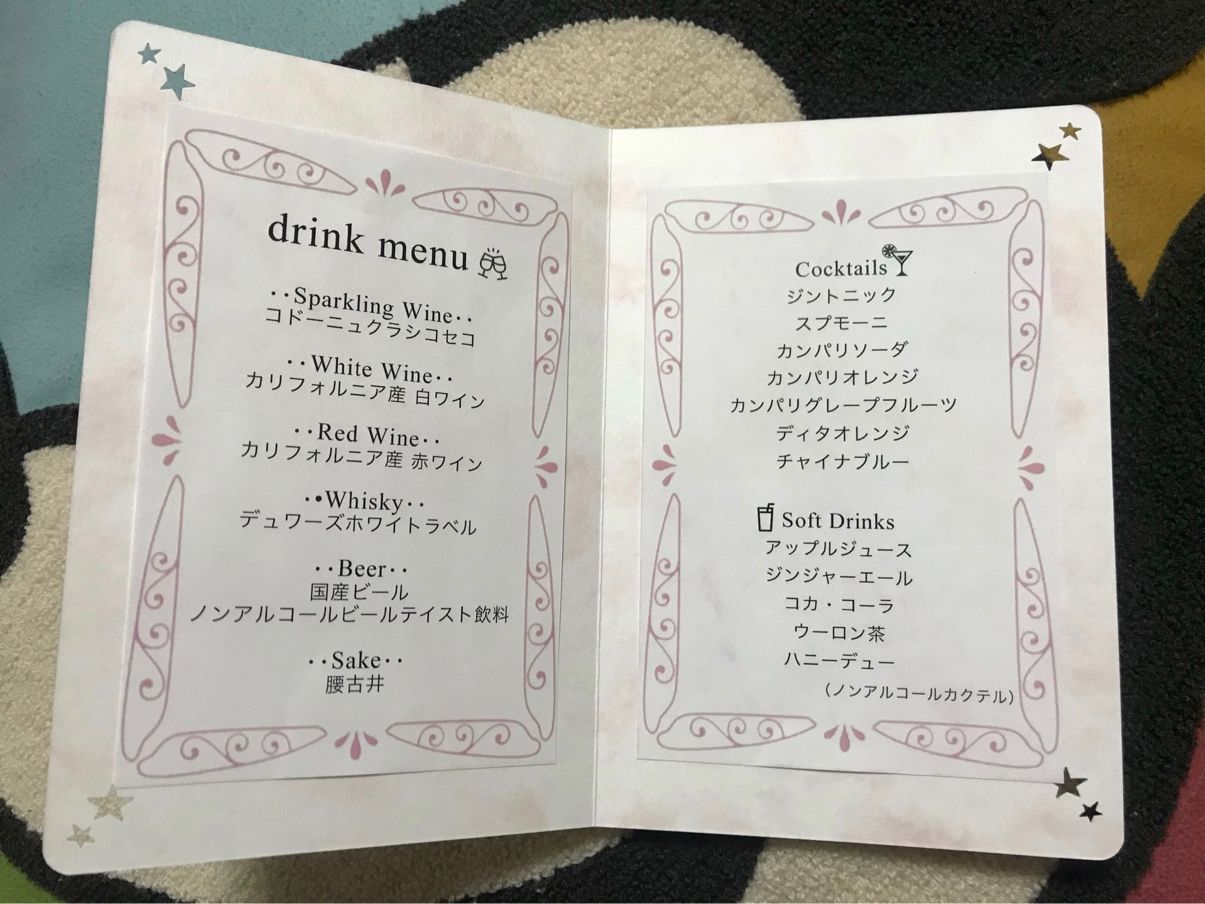 drink menu
‥Sparkling Wine‥
コドーニュクラシコセコ
‥White Wine‥
カリフォルニア産 白ワイン
‥Red Wine‥
カリフォルニア産 赤ワイン
‥Whisky‥
デュワーズホワイトラベル
‥Beer‥
国産ビール
ノンアルコールビールテイスト飲料
‥Sake‥
腰古井
Cocktails
ジントニック
スプモーニ
カンパリソーダ
カンパリオレンジ
カンパリグレープフルーツ
ディタオレンジ
チャイナブルー
Soft Drinks
アップルジュース
ジンジャーエール
コカ・コーラ
ウーロン茶
ハニーデュー
（ノンアルコールカクテル）